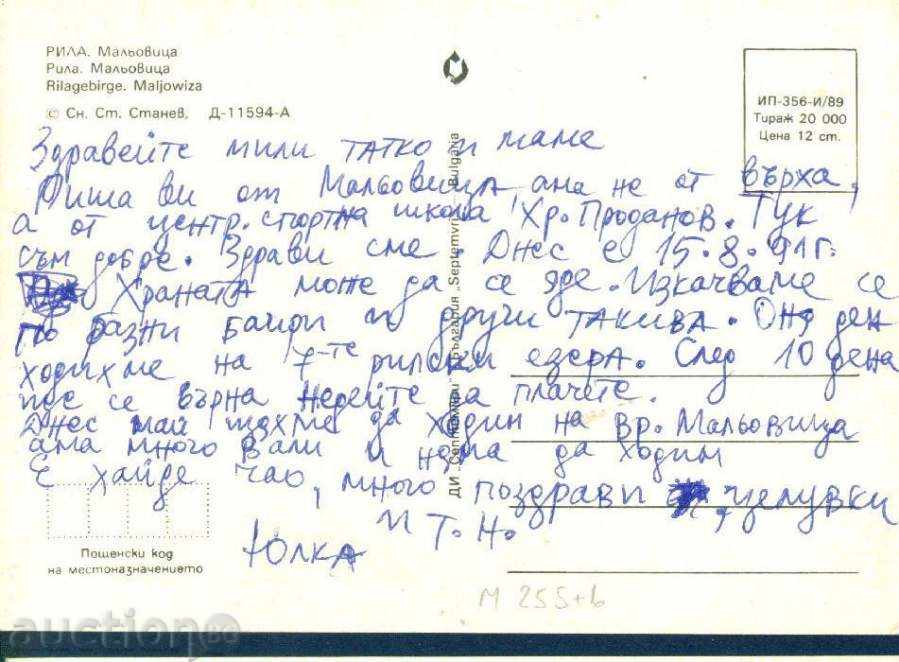 РИЛА. Мальовица
Рила. Мальовица
Rilagebirge. Maljowiza
© Сн. Ст. Станев, Д-11594-А
ИП-356-И/89
Тираж 20 000
Цена 12 ст.
ДИ „Септември" България „Septemvri" Bulgaria
Здравейте мили татко и маме
Пиша ви от Мальовица, ама не от върха,
а от центр. спортна школа Хр. Проданов. Тук
съм добре. Здрави сме. Днес е 15.8.91г.
Храната може да се яде. Изкачваме се
по разни баири и други такива. Оня ден
ходихме на 7-те рилски езера. След 10 дена
ще се върна недейте да плачете.
Днес май щяхме да ходим на вр. Мальовица
ама много вали и няма да ходим
Е хайде чао, много поздрави целувки
и т.н.
Юлка
Пощенски код
на местоназначението
М 255+b
auction.bg